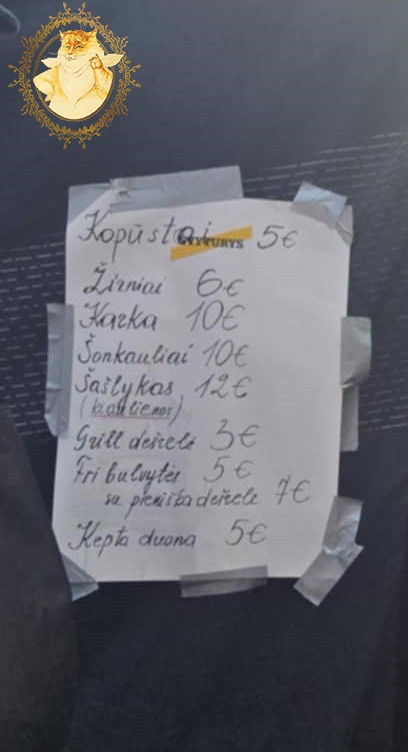 Kopūstai 5€
ŠVYTURYS
Žirniai 6€
Karka 10€
Šonkauliai 10€
Šašlykas 12€
(kiaulienos)
Grill dešrelė 3€
Fri bulvytės 5€
su pieniška dešrele 7€
Kepta duona 5€